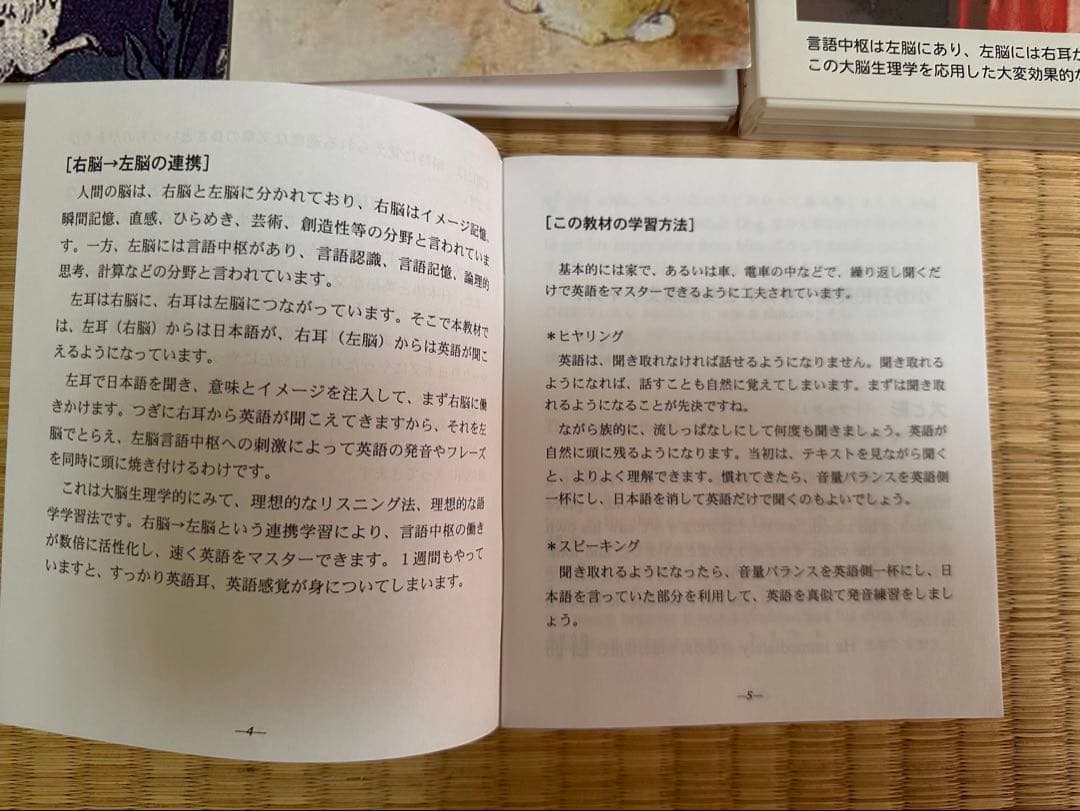 言語中枢は左脳にあり、左脳には右耳か
この大脳生理学を応用した大変効果的な
[右脳→左脳の連携]
人間の脳は、右脳と左脳に分かれており、右脳はイメージ記憶、
瞬間記憶、直感、ひらめき、芸術、創造性等の分野と言われていま
す。一方、左脳には言語中枢があり、言語認識、言語記憶、論理的
思考、計算などの分野と言われています。
左耳は右脳に、右耳は左脳につながっています。そこで本教材で
は、左耳（右脳）からは日本語が、右耳（左脳）からは英語が聞こ
えるようになっています。
左耳で日本語を聞き、意味とイメージを注入して、まず右脳に働
きかけます。つぎに右耳から英語が聞こえてきますから、それを左
脳でとらえ、左脳言語中枢への刺激によって英語の発音やフレーズ
を同時に頭に焼き付けるわけです。
これは大脳生理学的にみて、理想的なリスニング法、理想的な語
学学習法です。右脳→左脳という連携学習により、言語中枢の働き
が数倍に活性化し、速く英語をマスターできます。１週間もやって
いますと、すっかり英語耳、英語感覚が身についてしまいます。
—4—
[この教材の学習方法]
基本的には家で、あるいは車、電車の中などで、繰り返し聞くだ
けで英語をマスターできるように工夫されています。
＊ヒヤリング
英語は、聞き取れなければ話せるようになりません。聞き取れる
ようになれば、話すことも自然に覚えてしまいます。まずは聞き取
れるようになることが先決ですね。
ながら族的に、流しっぱなしにして何度も聞きましょう。英語が
自然に頭に残るようになります。当初は、テキストを見ながら聞く
と、よりよく理解できます。慣れてきたら、音量バランスを英語側
一杯にし、日本語を消して英語だけで聞くのもよいでしょう。
＊スピーキング
聞き取れるようになったら、音量バランスを英語側一杯にし、日
本語を言っていた部分を利用して、英語を真似て発音練習をしまし
ょう。
—5—